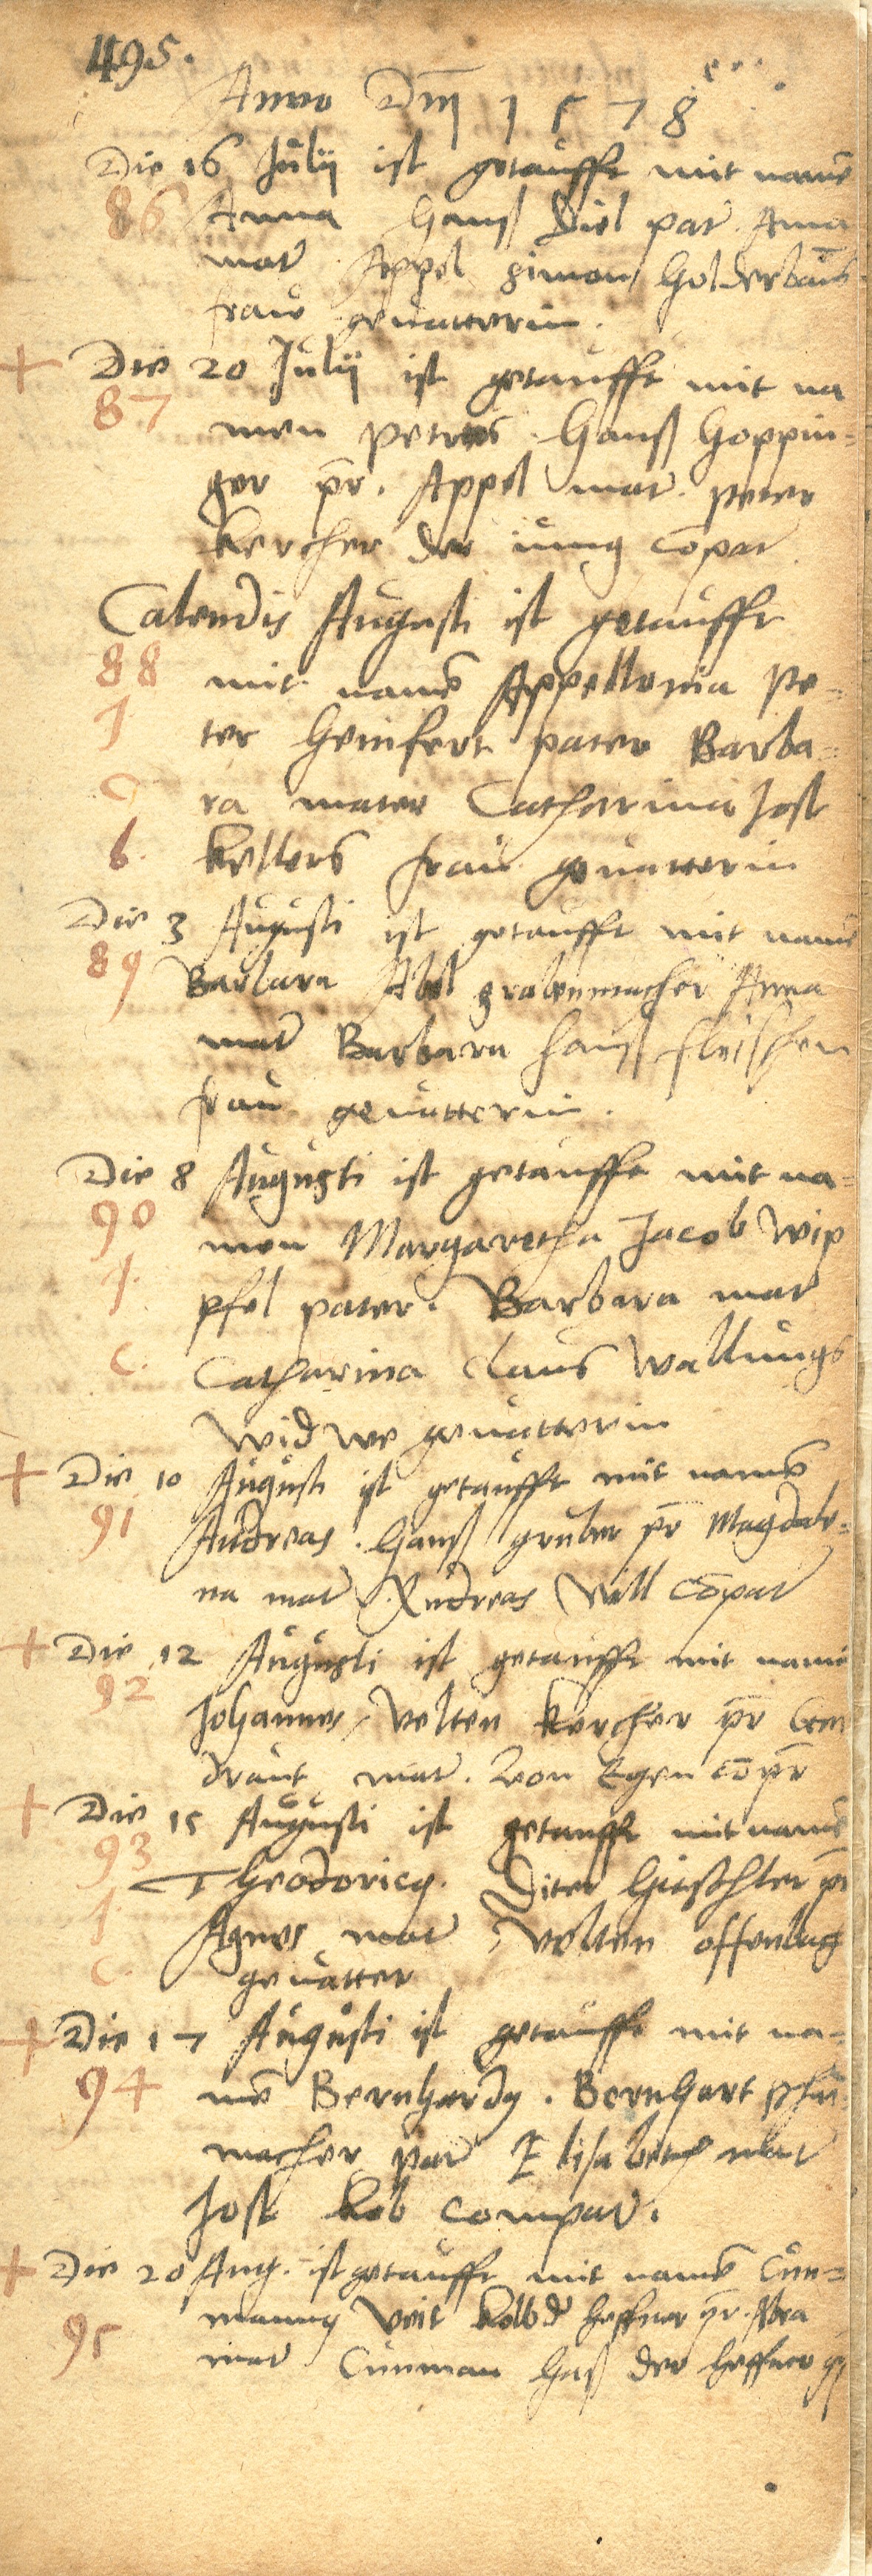 495.
Anno Dm̄ 1578
Die 16 Julii ist getaufft mit namē
86 Anna Hanß Diel pat Anna
mat Appel Simon Holderbaūs
frau gevatterin.
+ Die 20 Julii ist getaufft mit na
87
men Petrus. Hanß Hoppin=
ger pr̄. Appel mat. Peter
Kercher der iung cōpat
Calendis Augusti ist getaufft
88 mit namē Appellonia Pe=
J ter Heinfert pater Barba=
C ra mater Catharina Jost
b. Kellers frau gevatterin
Die 3 Augusti ist getaufft mit namē
89 Barbara Abel grabenmacher Anna
mat Barbara Hanß fleischen
frau gevatterin.
Die 8 Augusti ist getaufft mit na=
90 men Margaretha Jacob Wip
J. pfel pater. Barbara mat
C. Catharina Claus Wallungs
Widwe gevatterin
+ Die 10 Augusti ist getaufft mit namē
91 Andreas. Hanß gruber pr̄ Magdale=
na mat Andreas Will cōpat
+ Die 12 Augusti ist getaufft mit namē
92
Johannes, Velten Kercher pr̄
draut mat. Egen cōpr̄
+ Die 15 Augusti ist getaufft mit namē
93 Theodoricy. Diter pr̄
J. Agnes mat, Velten offenlug
C. gevatter
+ Die 17 Augusti ist getaufft mit na=
94 mē Bernhardy. Bernhart
macher pat Elisabeth mat
Jost Kob compat.
+ Die 20 Aug. ist getaufft mit namē Cun=
manny Veit Kolb d heffner pr̄.
95 mat Cunman Haß der heffner